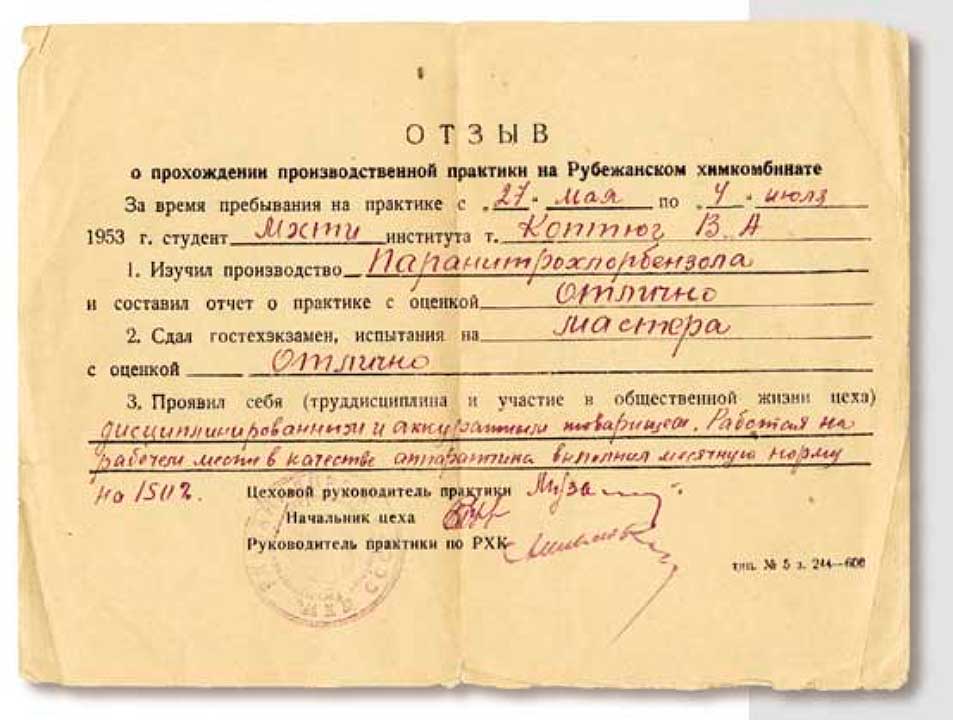 ОТЗЫВ
о прохождении производственной практики на Рубежанском химкомбинате
За время пребывания на практике с „27“ мая по „4“ июля
1953 г. студент МХТИ института т. Коптюг В. А
1. Изучил производство Паранитрохлорбензола
и составил отчет о практике с оценкой отлично
2. Сдал гостехэкзамен, испытания на мастера
с оценкой отлично
3. Проявил себя (труддисциплина и участие в общественной жизни цеха)
дисциплинированным и аккуратным товарищем. Работая на
рабочем месте в качестве аппаратчика выполнил месячную норму
на 150%.
Цеховой руководитель практики
Начальник цеха
Руководитель практики по РХК
тип. № 5 з. 244—600